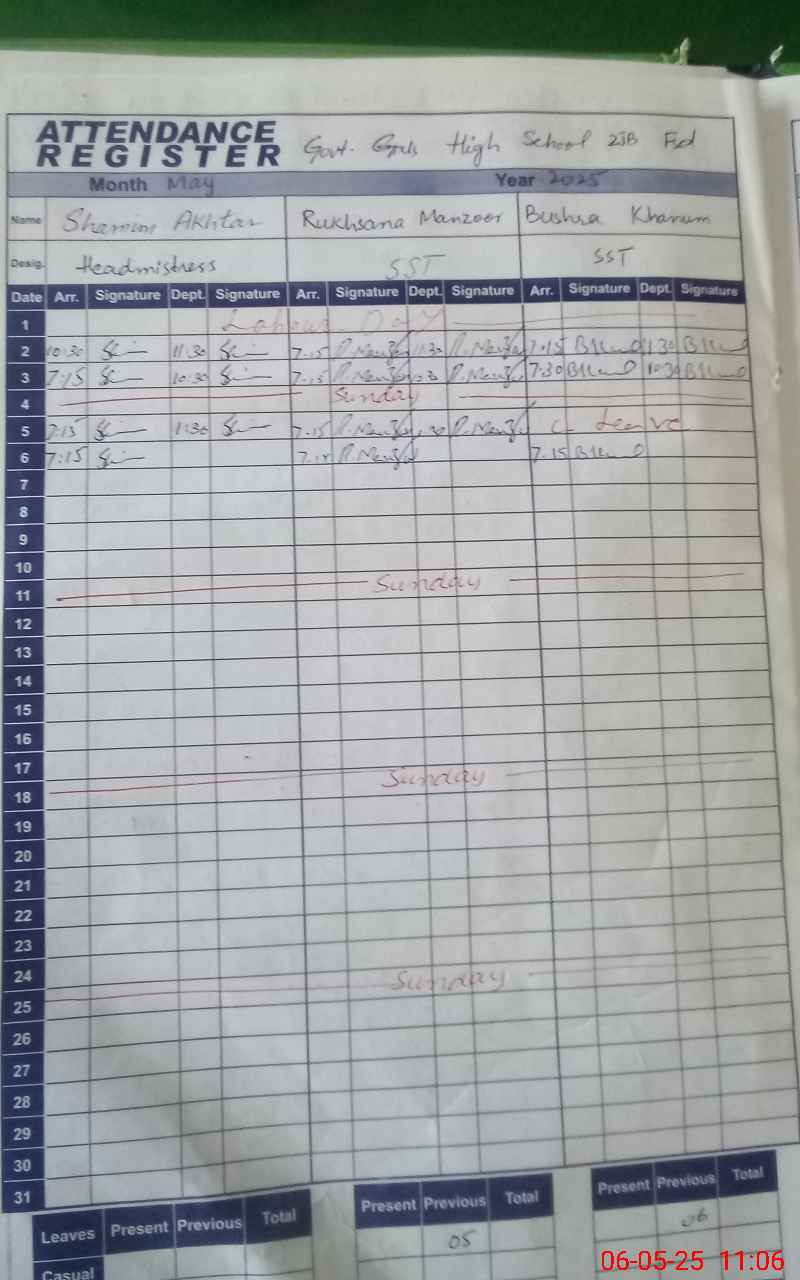 ATTENDANCE REGISTER Govt. Girls High School 2JB Fsd
Month May Year 2025
Name Shamim Akhtar Rukhsana Manzoor Bushra Khanum
Desig. Headmistress SST SST
Date Arr. Signature Dept. Signature Arr. Signature Dept. Signature Arr. Signature Dept. Signature
1 Labour Day
2 10:30 11:30 7.15 11:30 7.15 1.30
3 7:15 10:30 7.15 7:30 10:30
4 Sunday
5 7:15 11:30 7.15 C Leave
6 7:15 7.15
7
8
9
10
11 Sunday
12
13
14
15
16
17
18 Sunday
19
20
21
22
23
24
25 Sunday
26
27
28
29
30
31
Leaves Present Previous Total Present Previous Total Present Previous Total
05 06
Casual
06-05-25 11:06